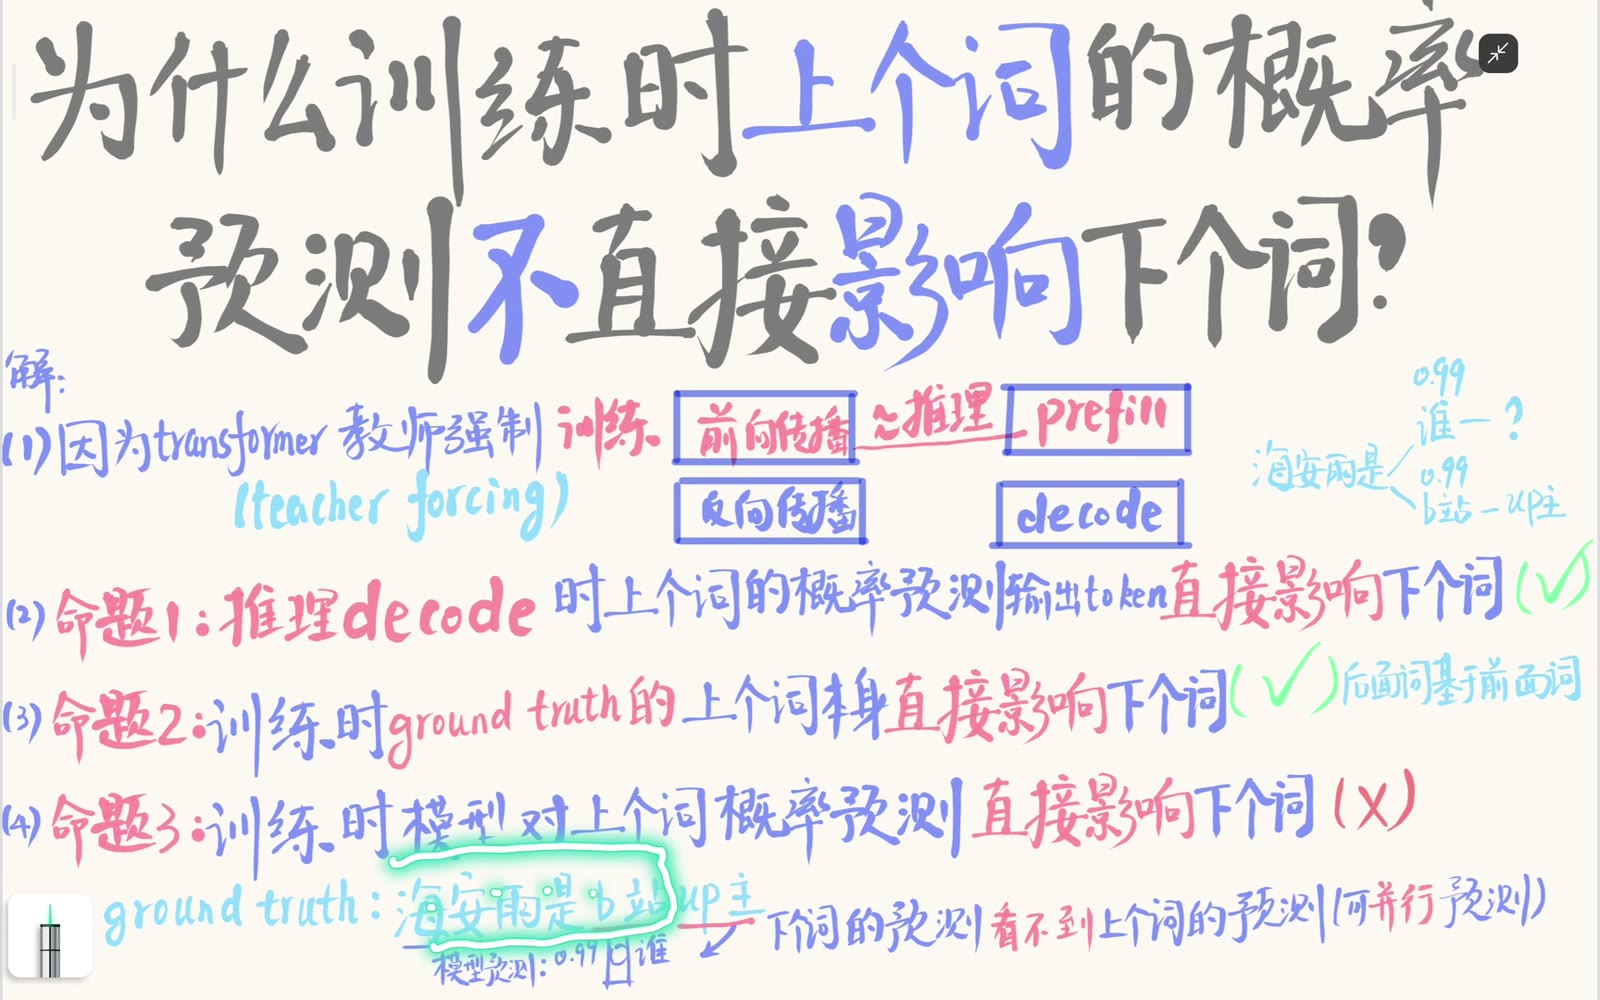 为什么训练时上个词的概率
预测不直接影响下个词?
解:
(1)因为transformer 教师强制 训练 前向传播 ≈推理 prefill
(teacher forcing) 反向传播 decode
0.99
谁一?
海安雨是
0.99
b站一up主
(2)命题1:推理decode 时上个词的概率预测输出token直接影响下个词(✓)
(3)命题2:训练时ground truth的 上个词本身直接影响下个词(✓)后面词基于前面词
(4)命题3:训练时模型对上个词概率预测 直接影响下个词(×)
ground truth:海安雨是b站up主 下个词的预测看不到上个词的预测(可并行预测)
模型预测:0.99 谁